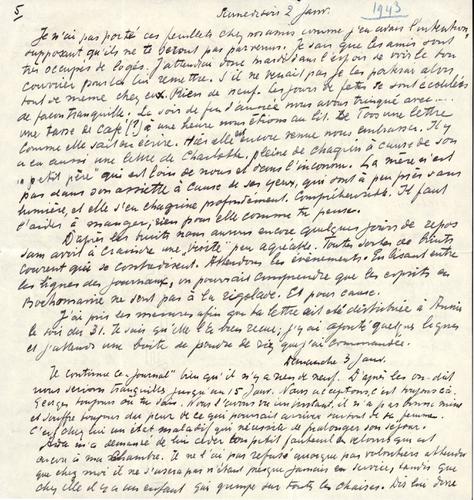 5 Samedi 2 Janv. 1943
Je n'ai pas porté ces feuillets chez nos amis comme j'en avais l'intention,
supposant qu'ils ne te seront pas parvenus. Je sais que les amis sont
très occupés de loges. J'attendrai donc mardi dans l'espoir de voir le bon
courrier pour la lui remettre. S'il ne venait pas je les porterai alors
tout de même chez eux. Rien de neuf. Les jours de fêtes se sont écoulés
de façon tranquille. Le soir de fin d'année nous avons trinqué avec...
une tasse de café [!] à une heure nous étions au lit. De Toos une lettre
comme elle sait en écrire. Hier elle est encore venue nous embrasser. Il y
a eu aussi une lettre de Charlotte, pleine de chagrin à cause de son
"petit père" qui est loin de nous et dans l'inconnu. La mère n'est
pas dans son assiette à cause de ses yeux, qui sont à peu près sans
lumière, et elle s'en chagrine profondément. Compréhensible. Il faut
l'aider à manger, rien pour elle comme tu penses.
D'après les bruits nous aurons encore quelques jours de repos
sans avoir à craindre une "visite" peu agréable. Toutes sortes de bruits
courent qui se contredisent. Attendons les événements. En lisant entre
les lignes des journaux, on pourrait comprendre que les esprits en
Bochomanie ne sont pas à la rigolade. Et pour cause.
J'ai pris les mesures afin que ta lettre ait été distribuée à Annie
le soir des 31. Je sais qu'elle l'a bien reçue; j'y ai ajouté quelques lignes
et j'attends une boîte de poudre de riz que j'ai commandée.
Dimanche 3 Janv.
Je continue ce "journal" bien qu'il n'y a rien de neuf. D'après les on-dit
nous serions tranquilles jusqu'au 15 Janv. Nous acceptons, c'est toujours ça.
Georges toujours en sana. Nous l'avons vu un instant, il n'a pas bonne mine
et souffre toujours de peur de ce qui pourrait arriver surtout de sa femme.
C'est chez lui un état maladif qui nécessite de prolonger son séjour.
Ada m'a demandé de lui céder ton petit fauteuil de velours qui est
encore à ma chambre. Je ne l'ai pas refusé quoique pas volontiers attendu
que chez moi il ne s'usera pas n'étant presque jamais en service, tandis que
chez elle il y a un enfant qui grimpe sur toutes les chaises. Dis-lui donc